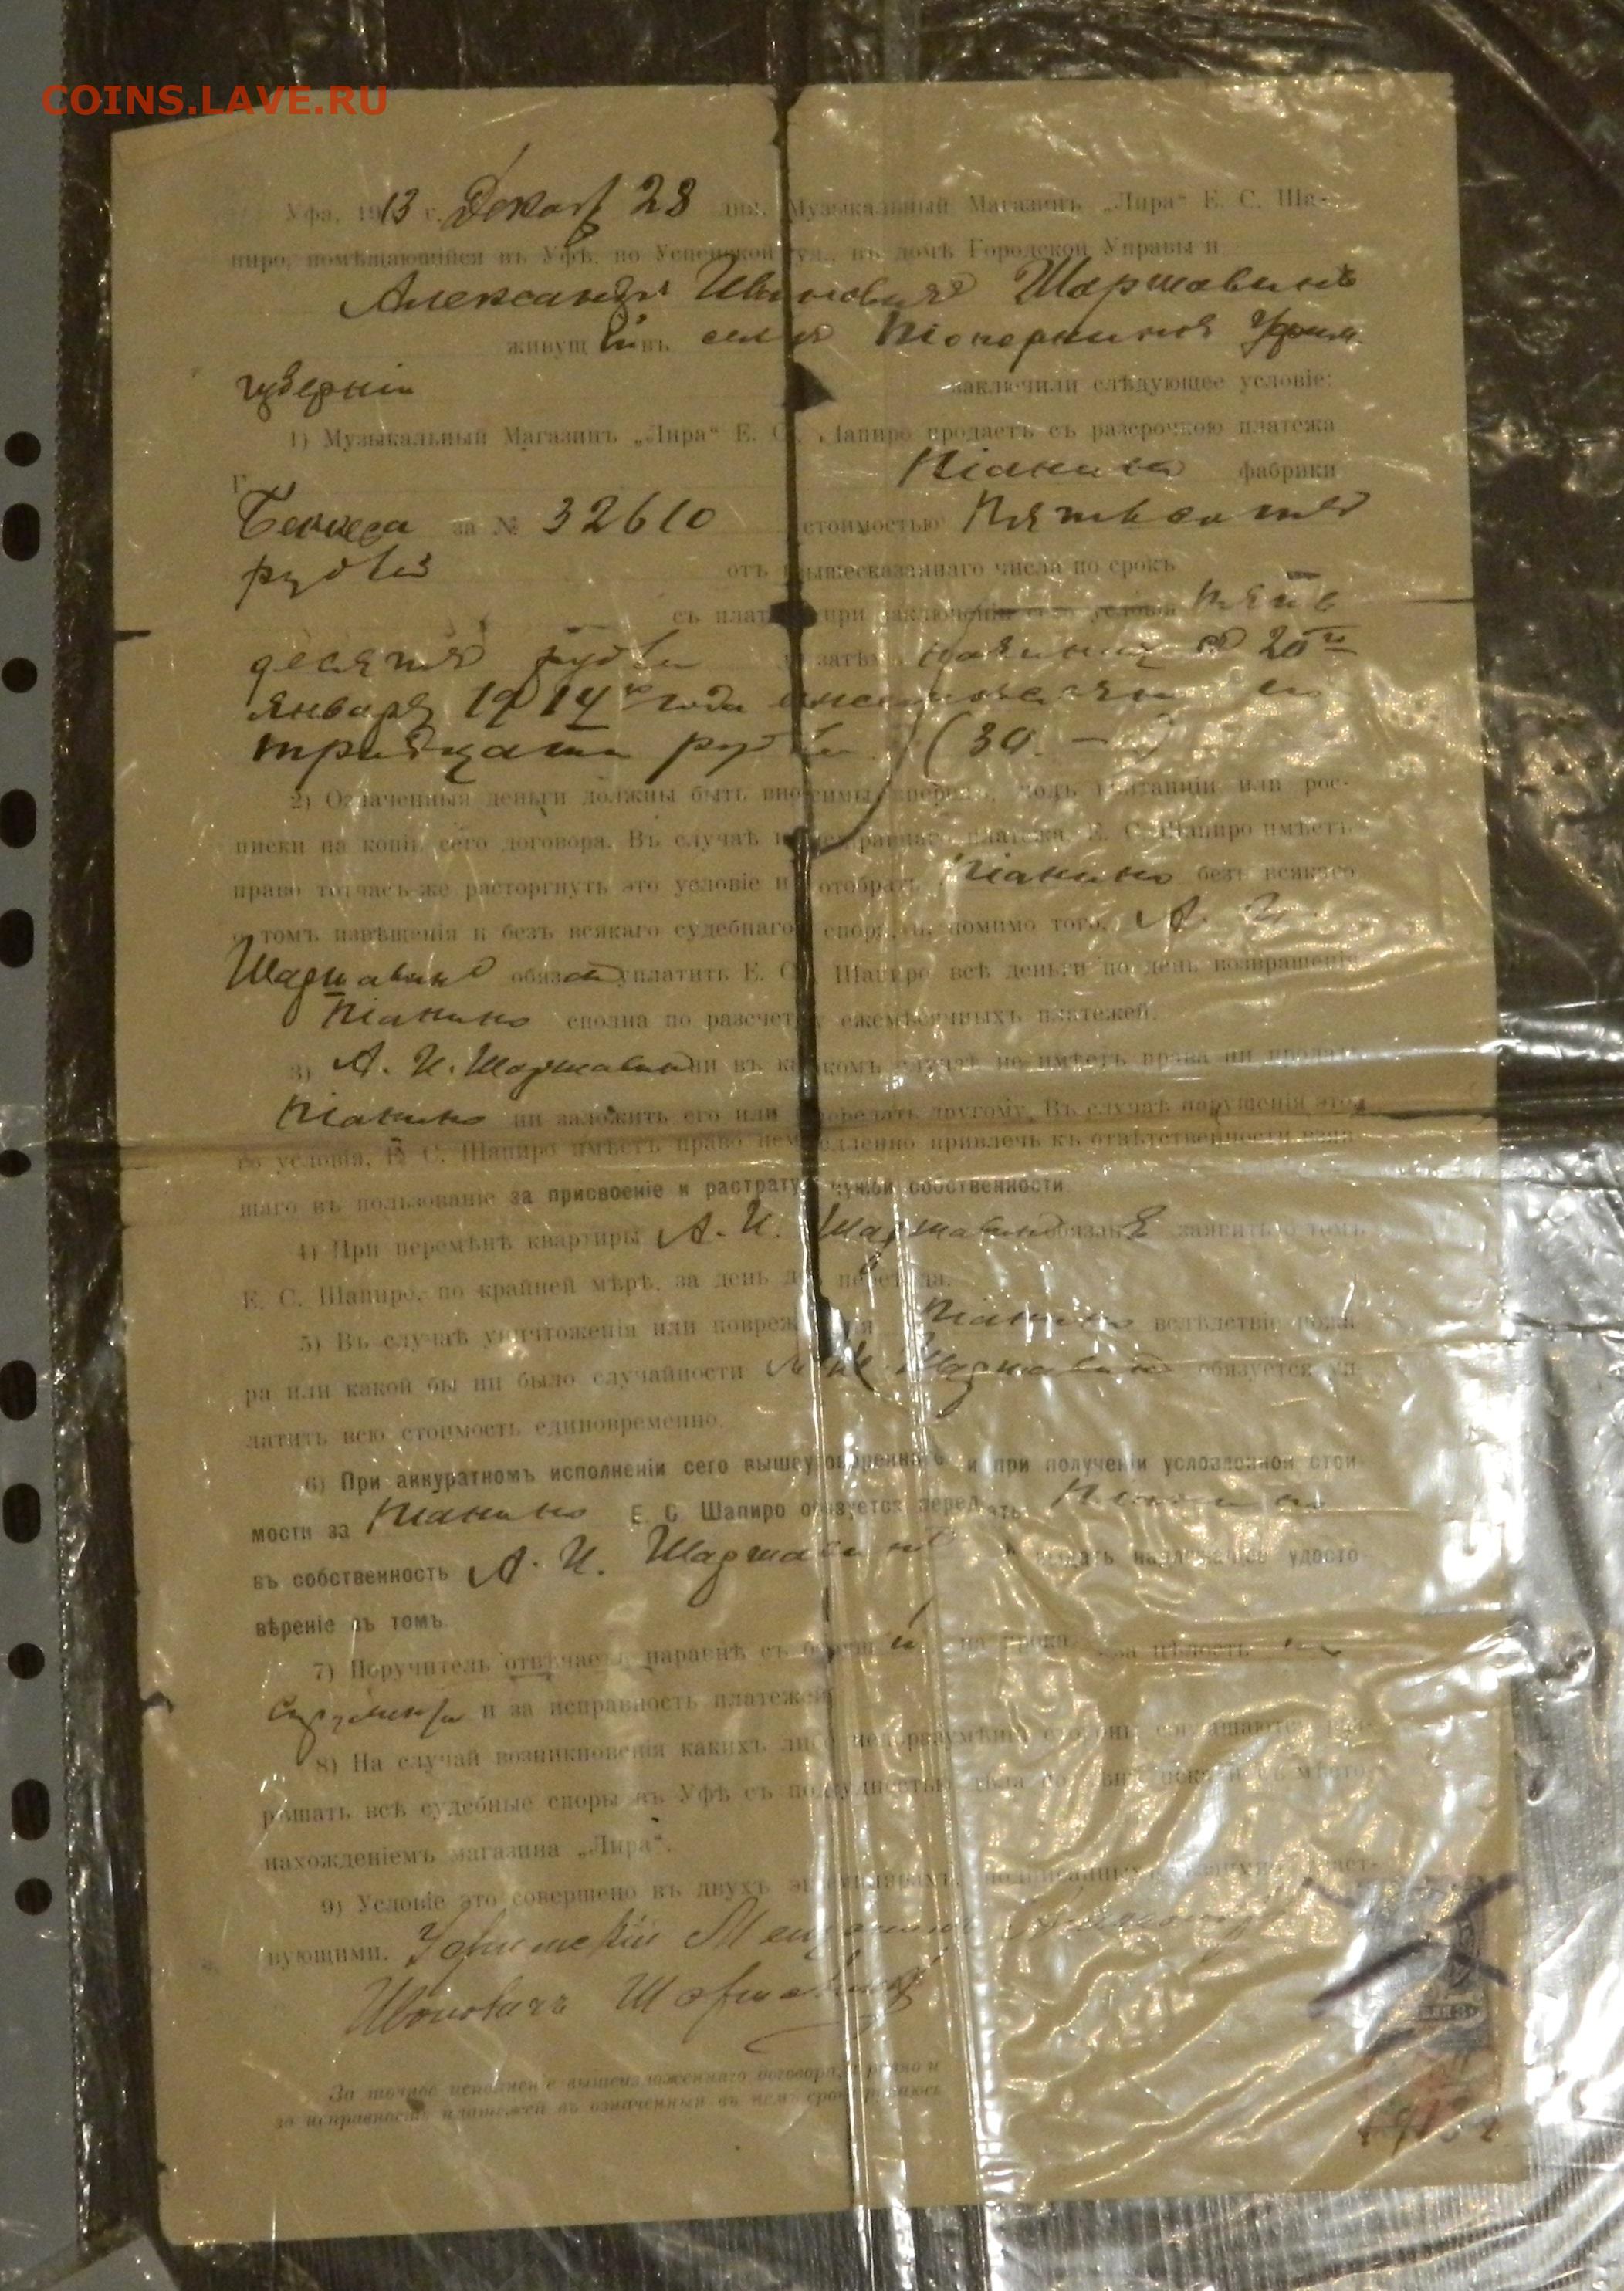 COINS.LAVE.RU
Уфа, 1913 г. Декабр 28 дня. Музыкальный Магазинъ „Лира“ Е. С. Ша-
пиро, помѣщающійся въ Уфѣ, по Успенской ул., въ домѣ Городской Управы и
Александръ Ивановичъ Шаршавинъ
живущій въ селѣ Уфим.
губерніи заключили слѣдующее условіе:
1) Музыкальный Магазинъ „Лира“ Е. С. Шапиро продаетъ съ разсрочкою платежа
Г. Піанино фабрики
Беккера за № 32610 стоимостью Пятьсотъ
рублей отъ вышесказаннаго числа по срокъ
съ платой при заключеніи сего условія пять
десятъ рублей и затѣмъ начиная съ 20го
января 1914го года ежемѣсячно по
тридцати рублей (30. —)
2) Означенныя деньги должны быть вносимы впередъ, подъ квитанціи или рос-
писки на копіи сего договора. Въ случаѣ неисправнаго платежа, Е. С. Шапиро имѣетъ
право тотчасъ-же расторгнуть это условіе и отобрать Піанино безъ всякаго
о томъ извѣщенія и безъ всякаго судебнаго спора, и, помимо того, А. И.
Шаршавинъ обязанъ уплатить Е. С. Шапиро всѣ деньги по день возвращенія
Піанино сполна по разсчету ежемѣсячныхъ платежей.
3) А. И. Шаршавинъ ни въ какомъ случаѣ не имѣетъ права ни продать
Піанино ни заложить его или передать другому. Въ случаѣ нарушенія этого
условія, Е. С. Шапиро имѣетъ право немедленно привлечь къ отвѣтственности взяв-
шаго въ пользованіе за присвоеніе и растрату чужой собственности
4) При перемѣнѣ квартиры А. И. Шаршавинъ обязанъ заявить о томъ
Е. С. Шапиро, по крайней мѣрѣ, за день до переѣзда.
5) Въ случаѣ уничтоженія или поврежденія Піанино вслѣдствіе пожа-
ра или какой бы ни было случайности А. И. Шаршавинъ обязуется уп-
латить всю стоимость единовременно.
6) При аккуратномъ исполненіи сего вышеуговореннаго и при полученіи условленной стои
мости за Піанино Е. С. Шапиро обязуется передать Піанино
въ собственность А. И. Шаршавинъ и выдать надлежащее удосто
вѣреніе въ томъ
7) Поручитель отвѣчаетъ наравнѣ съ за цѣлость ин
струмента и за исправность платежей
8) На случай возникновенія какихъ либо недоразумѣній стороны соглашаются раз-
рѣшать всѣ судебные споры въ Уфѣ съ подсудностью дѣла по
нахожденіемъ магазина „Лира“.
9) Условіе это совершено въ двухъ экземплярахъ, подписанныхъ
вующими. Уфимскій Мещанинъ Александръ
Ивановичъ Шаршавинъ
За точное исполненіе вышеизложеннаго договора, равно и
за исправность платежей въ означенный въ немъ срокъ ручаюсь
1913 г